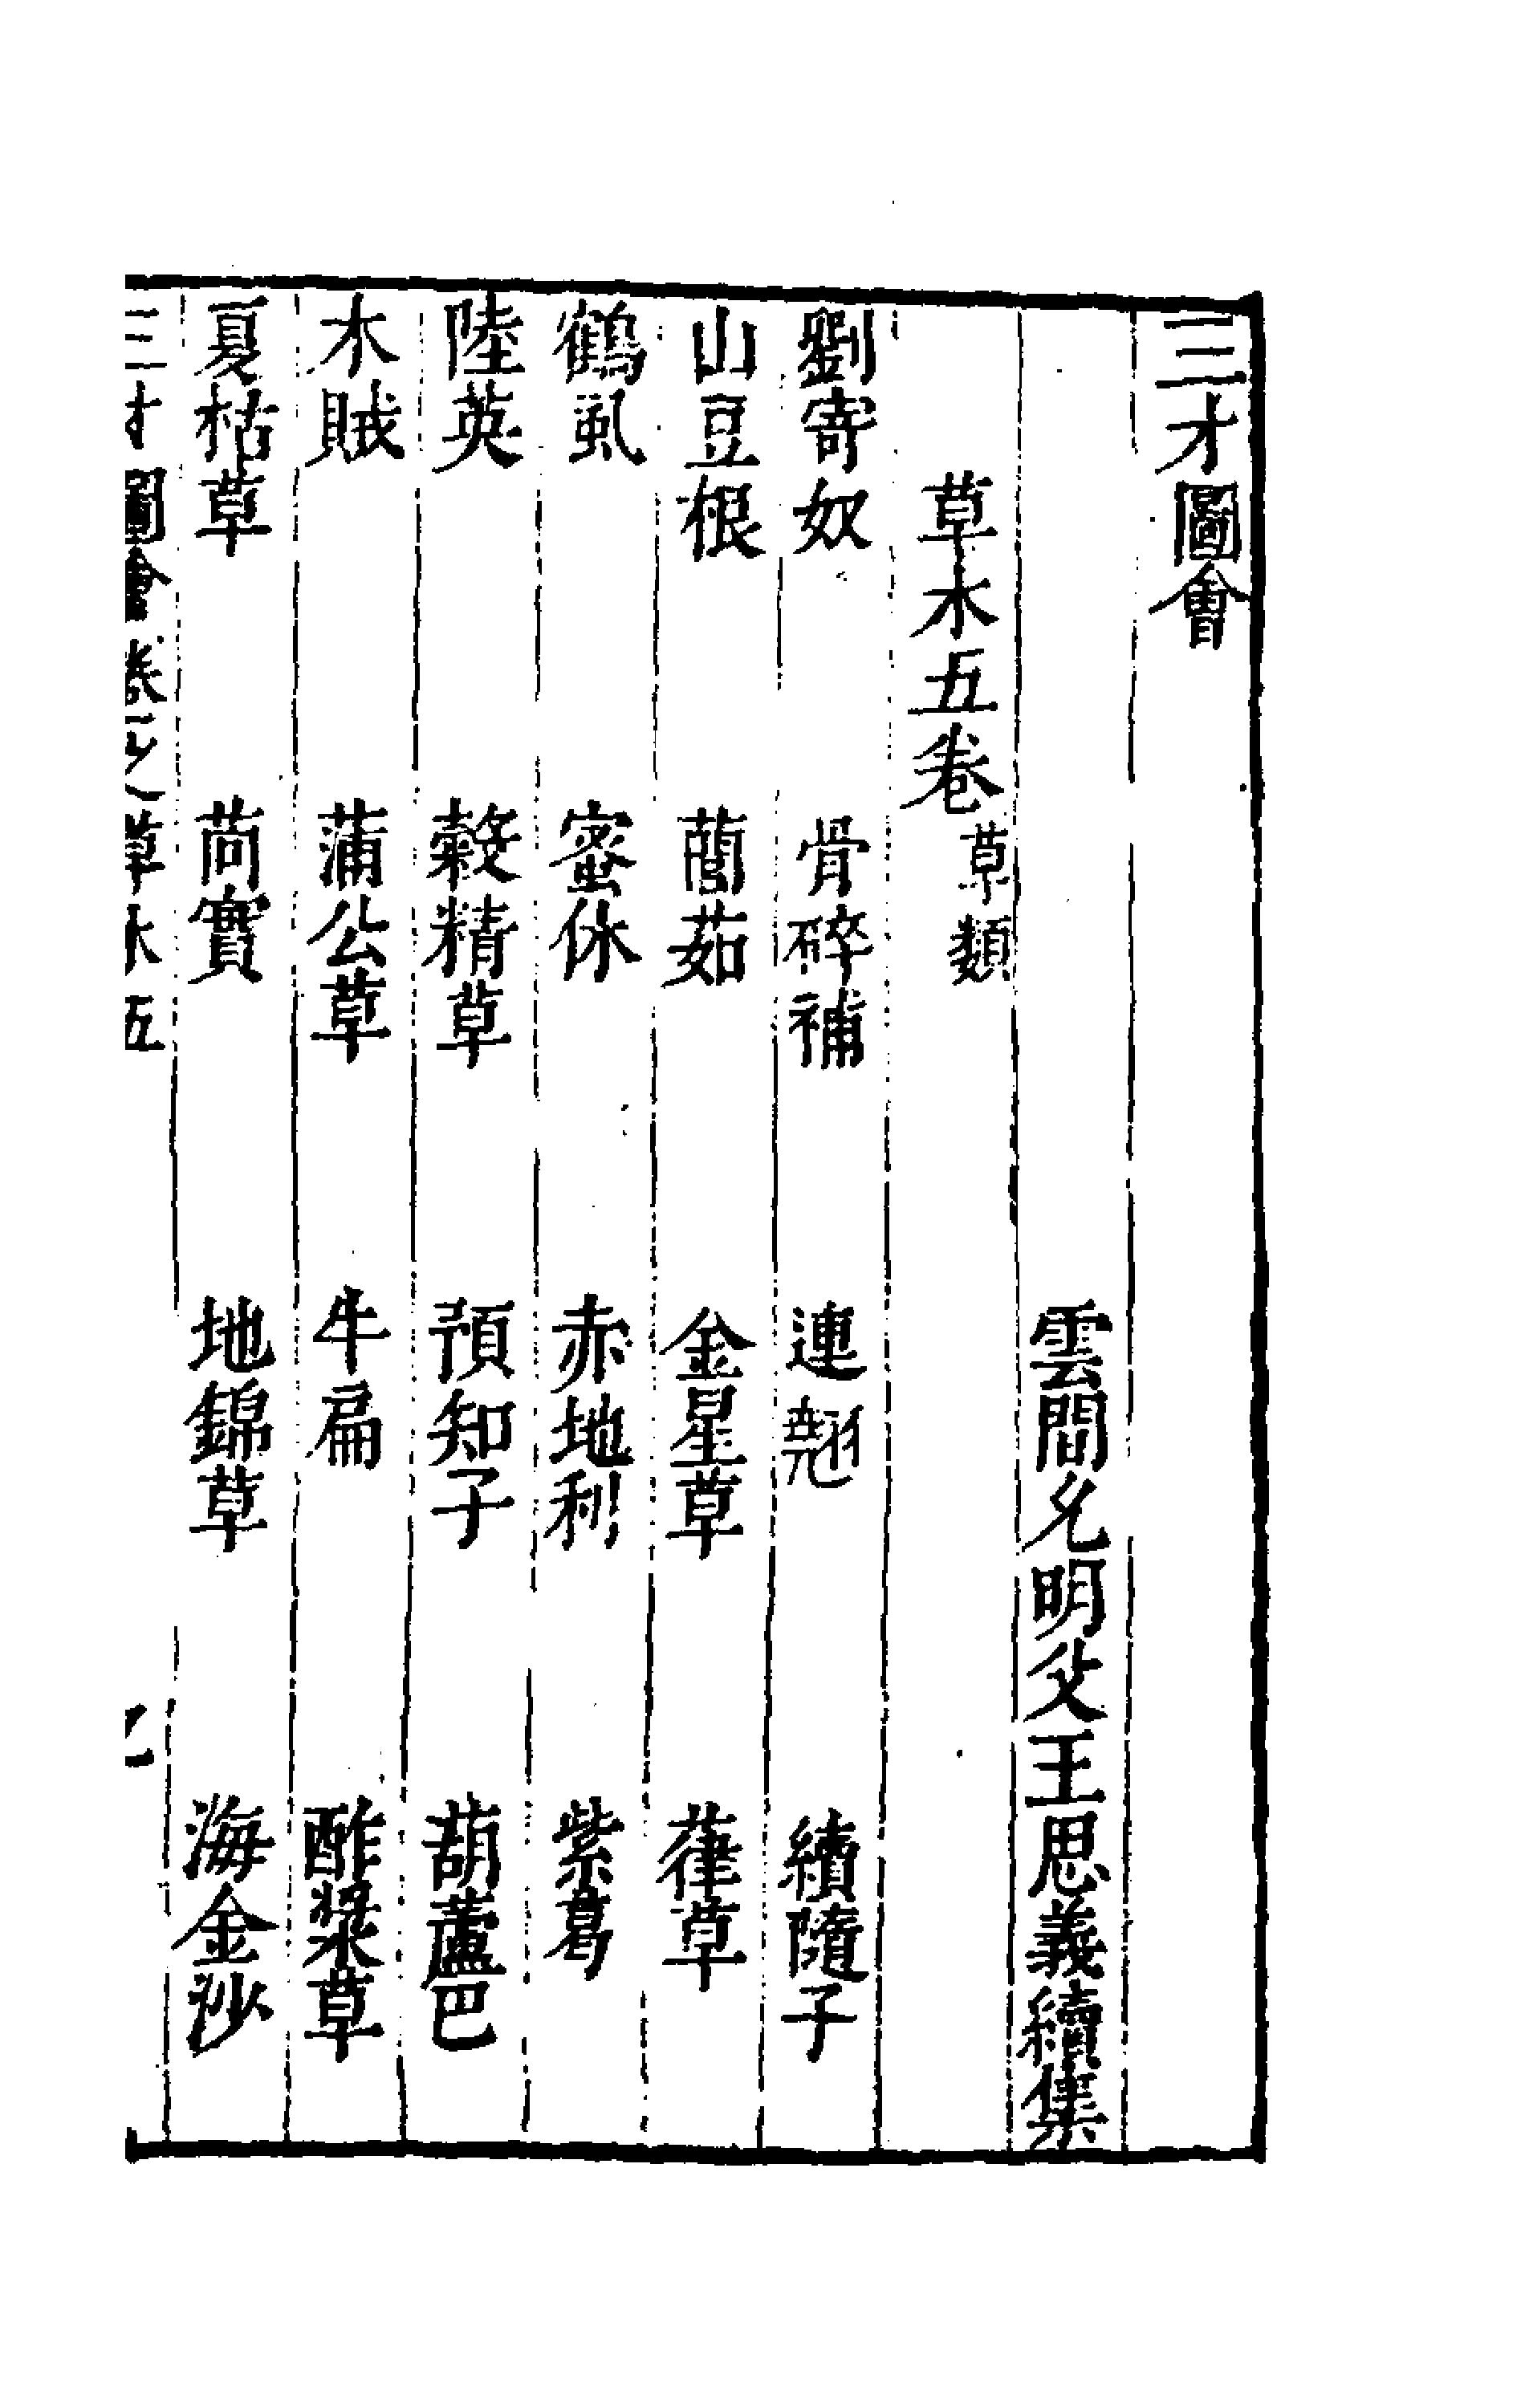 三才圖會
雲間允明父王思義續集
草木五卷 草類
劉寄奴 骨碎補 連翹 續隨子
山豆根 藘茹 金星草 葎草
鶴虱 蜜休 赤地利 紫葛
陸英 穀精草 預知子 葫蘆巴
木賊 蒲公草 牛扁 酢漿草
夏枯草 茼實 地錦草 海金沙
三才圖會 卷之 草木五